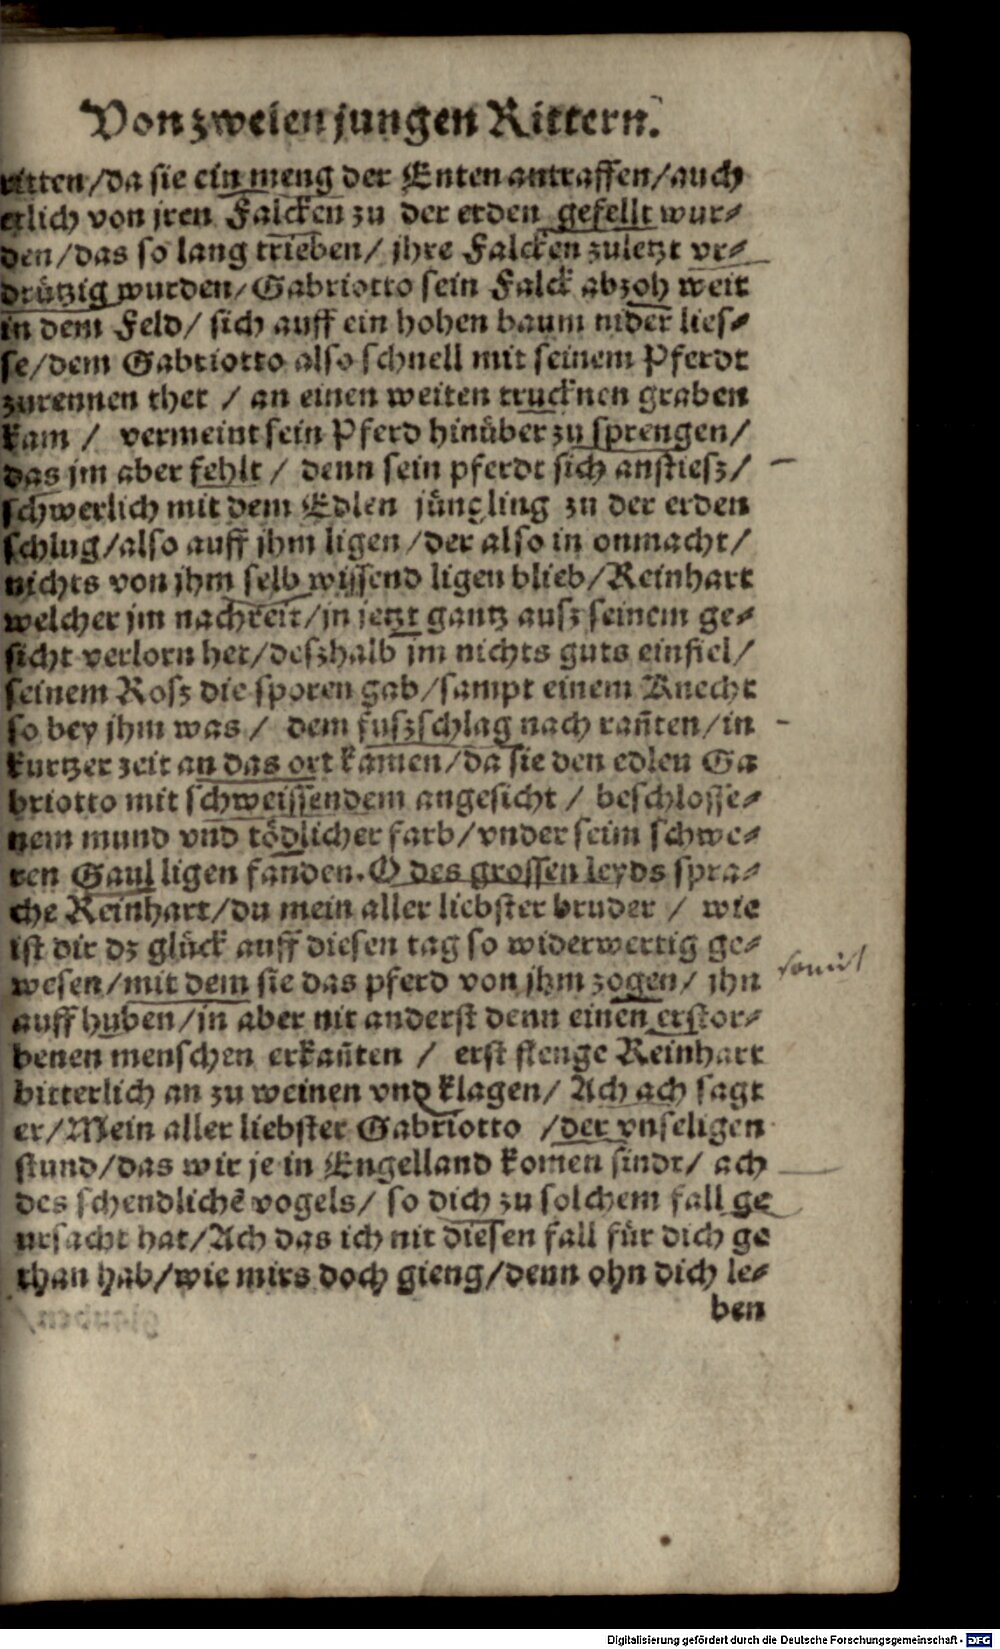 Von zweien jungen Rittern.
ritten/da sie ein meng der Enten antraffen/auch
etlich von jren Falcken zu der erden gefellt wur-
den/das so lang trieben/ jhre Falcken zuletzt vr-
drützig wurden/Gabriotto sein Falck abzoh weit
in dem Feld/ sich auff ein hohen baum nider lies-
se/dem Gabriotto also schnell mit seinem Pferdt
zurennen thet / an einen weiten trucknen graben
kam / vermeint sein Pferd hinüber zu sprengen/
das jm aber fehlt / denn sein pferdt sich anstiesz/
schwerlich mit dem Edlen jüngling zu der erden
schlug/also auff jhm ligen/der also in onmacht/
nichts von jhm selb wissend ligen blieb/Reinhart
welcher jm nachreit/jn jetzt gantz ausz seinem ge-
sicht verlorn het/deszhalb jm nichts guts einfiel/
seinem Rosz die sporen gab/sampt einem Knecht
so bey jhm was / dem fuszschlag nach rañten/in
kurtzer zeit an das ort kamen/da sie den edlen Ga
briotto mit schweissendem angesicht / beschlosse-
nem mund vnd tödlicher farb/vnder seim schwe-
ren Gaul ligen fanden. O des grossen leyds spra-
che Reinhart/du mein aller liebster bruder / wie
ist dir dz glück auff diesen tag so widerwertig ge-
wesen/mit dem sie das pferd von jhm zogen/ jhn
somit
auff huben/jn aber nit anderst denn einen erstor-
benen menschen erkañten / erst fienge Reinhart
bitterlich an zu weinen vnd klagen/ Ach ach sagt
er/Mein aller liebster Gabriotto /der vnseligen
stund/das wir je in Engelland komen sindt/ ach
des schendlichẽ vogels/ so dich zu solchem fall ge
ursacht hat/Ach das ich nit diesen fall für dich ge
than hab/wie mirs doch gieng/denn ohn dich le-
ben
Digitalisierung gefördert durch die Deutsche Forschungsgemeinschaft - DFG